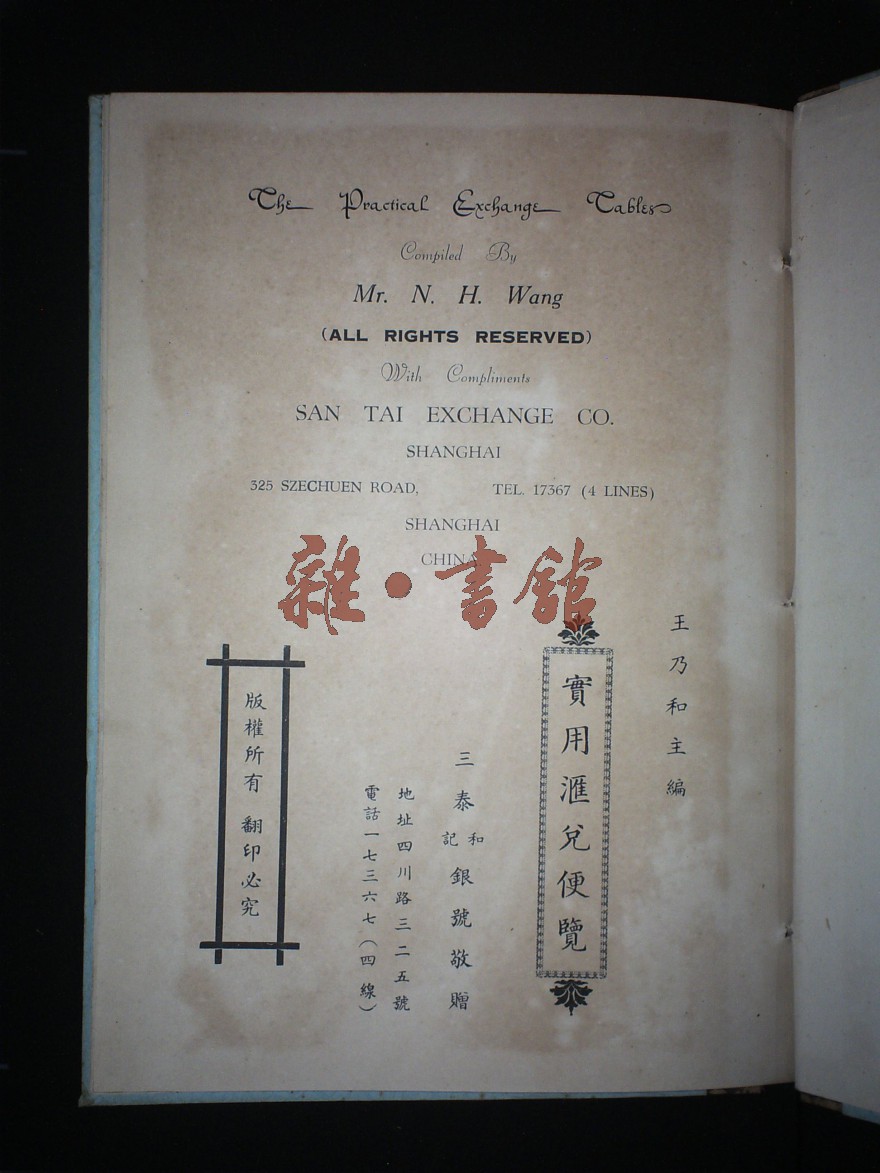 The Practical Exchange Tables
Compiled By
Mr. N. H. Wang
(ALL RIGHTS RESERVED)
With Compliments
SAN TAI EXCHANGE CO.
SHANGHAI
325 SZECHUEN ROAD, TEL. 17367 (4 LINES)
SHANGHAI
CHINA
雜·書館
王乃和主編
實用滙兌便覽
三泰和記銀號敬贈
地址四川路三二五號
電話一七三六七(四線)
版權所有 翻印必究